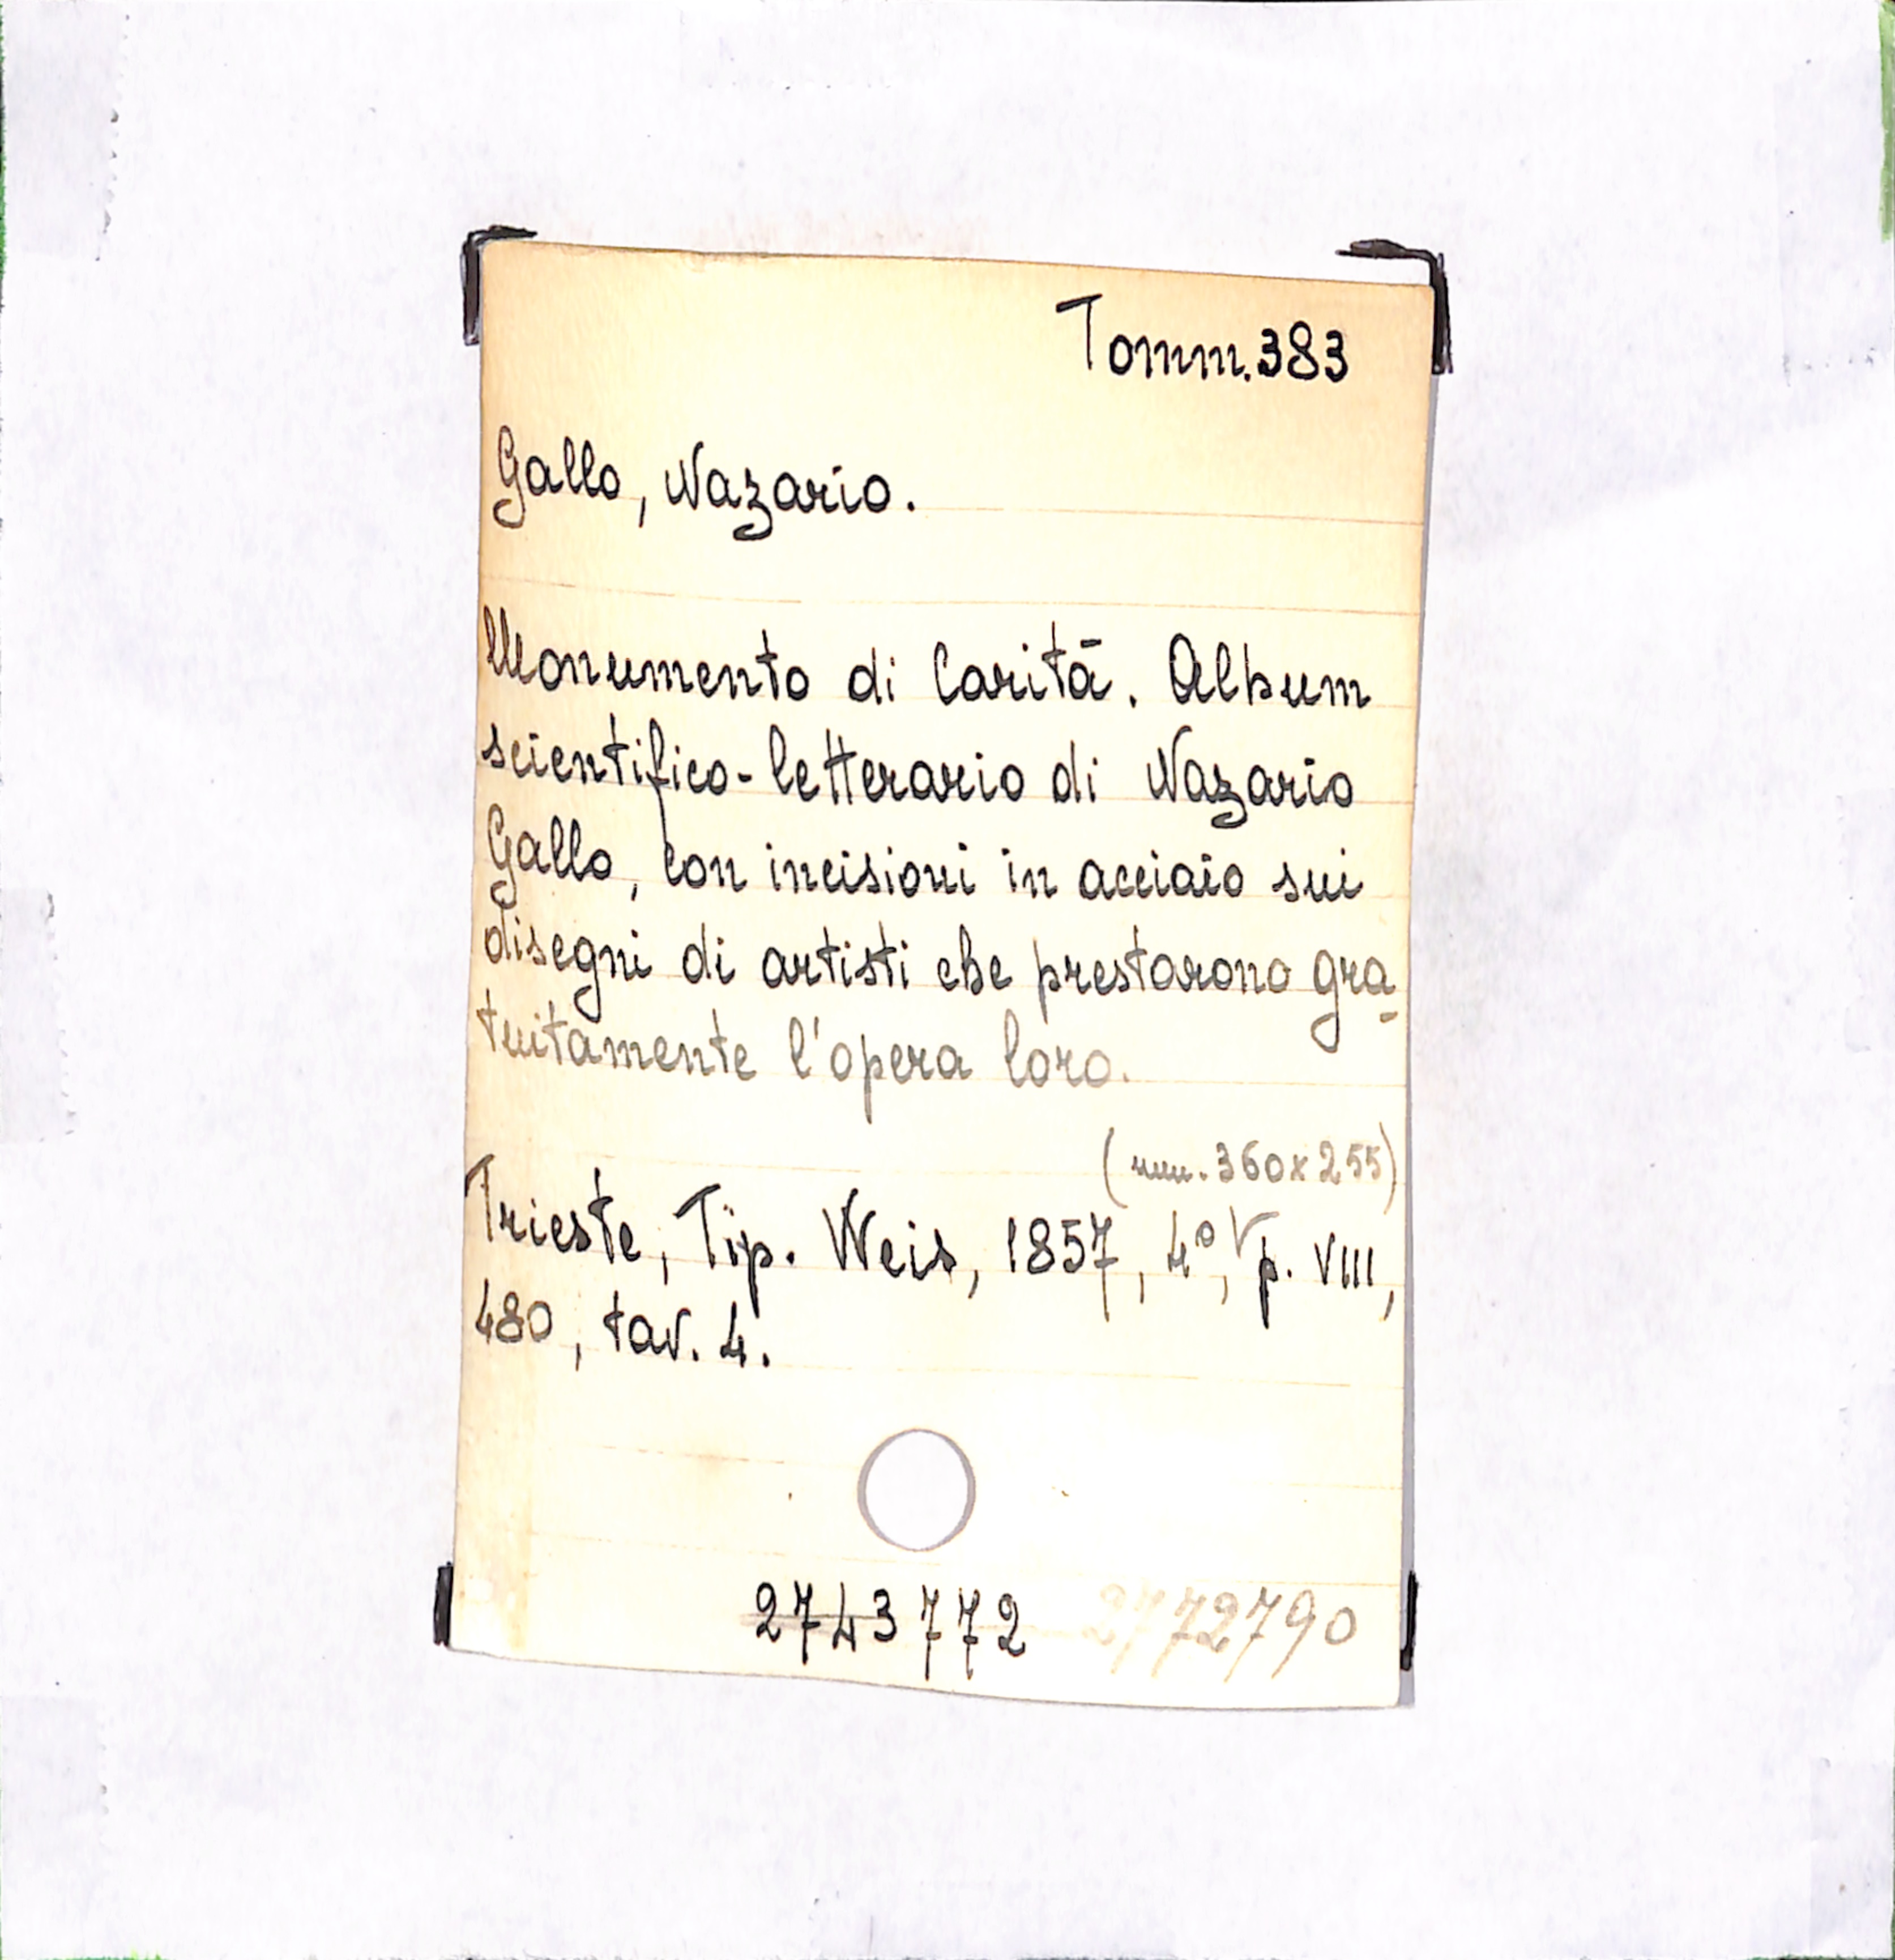 Tomm. 383
Gallo, Nazario.
Monumento di Carità. Album
scientifico-letterario di Nazario
Gallo, con incisioni in acciaio sui
disegni di artisti che prestarono gra-
tuitamente l'opera loro.
(mm. 360x255)
Trieste, Tip. Weis, 1857, 4°, p. VIII,
480, tav. 4.
2743772 2772790